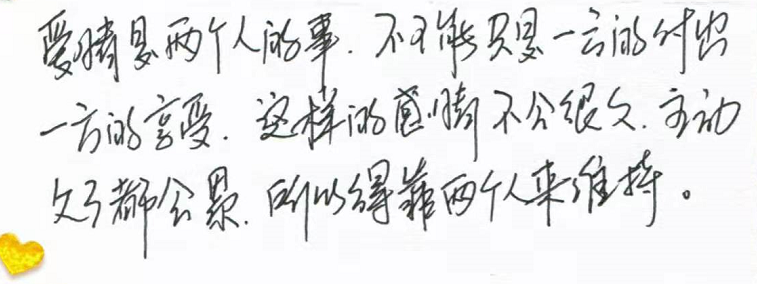 爱情是两个人的事.不可能只是一方的付出
一方的享受.这样的感情不会很久.主动
久了都会累.所以得靠两个人来维持。